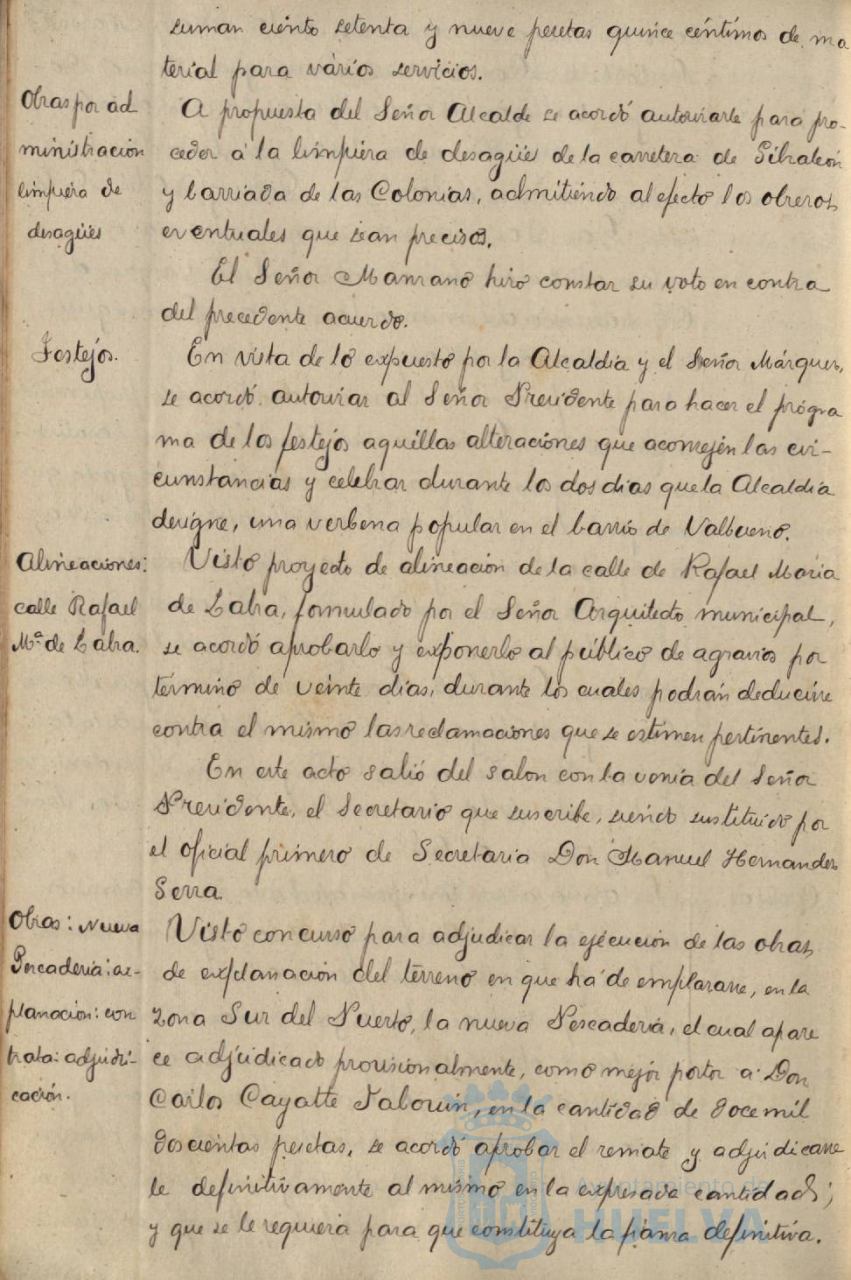 suman ciento setenta y nueve pesetas quince céntimos de ma
terial para vários servicios.
Obras por ad
ministración
limpieza de
desagües
A propuesta del Señor Alcalde se acordó autorizarle para pro-
ceder á la limpieza de desagües de la carretera de Gibraleón
y barriada de las Colonias, admitiendo al efecto los obreros
eventuales que sean precisos.
El Señor Manzano hizo constar su voto en contra
del precedente acuerdo.
Festejos.
En vista de lo expuesto por la Alcaldía y el Señor Márquez,
se acordó autorizar al Señor Presidente para hacer el prógra
ma de los festejos aquéllas alteraciones que aconsején las cir-
cunstancias y celebrar durante los dos dias que la Alcaldía
designe, una verbena popular en el barrio de Valbueno.
Alineaciones:
calle Rafael
Mª de Labra.
Visto proyecto de alineación de la calle de Rafael María
de Labra, formulado por el Señor Arquitecto municipal,
se acordó aprobarlo y exponerlo al público de agravios por
término de veinte dias, durante los cuales podrán deducirse
contra el mismo las reclamaciones que se estimen pertinentes.
En este acto salió del salon con la venia del Señor
Presidente, el Secretario que suscribe, siendo sustituido por
el oficial primero de Secretaria Don Manuel Hernandez
Serra.
Obras: Nueva
Pescadería: ex-
planación: con
trata: adjudi-
cación.
Visto concurso para adjudicar la ejécución de las obras
de explanación del terreno en que há de emplazarse, en la
zona Sur del Puerto, la nueva Pescadería, el cual apare
ce adjudicado provisionalmente, como mejór postor a Don
Carlos Cayatte Tabouin, en la cantidad de doce mil
doscientas pesetas, se acordó aprobar el remate y adjudicarse
le definitivamente al mismo en la expresada cantidad;
y que se le requiera para que constituya la fianza definitiva.
Ayuntamiento de
HUELVA